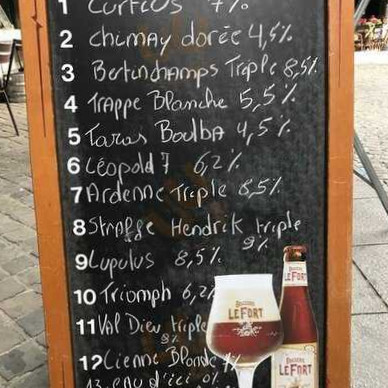 1 Curtius 7%
2 chimay dorée 4,5%
3 Bertinchamps Triple 8,5%
4 TRAppe Blanche 5,5%
5 Taras BoulBA 4,5%
6 Léopold 7 6,2%
7 Ardenne Triple 8,5%
8 Straffe Hendrik triple 9%
9 Lupulus 8,5%
10 Triomph 6,2%
11 Val Dieu triple 9%
12 Cienne Blonde 7%
13 eau d'ici 0%
BRASSERIE
LEFORT
LEFORT
LEFORT